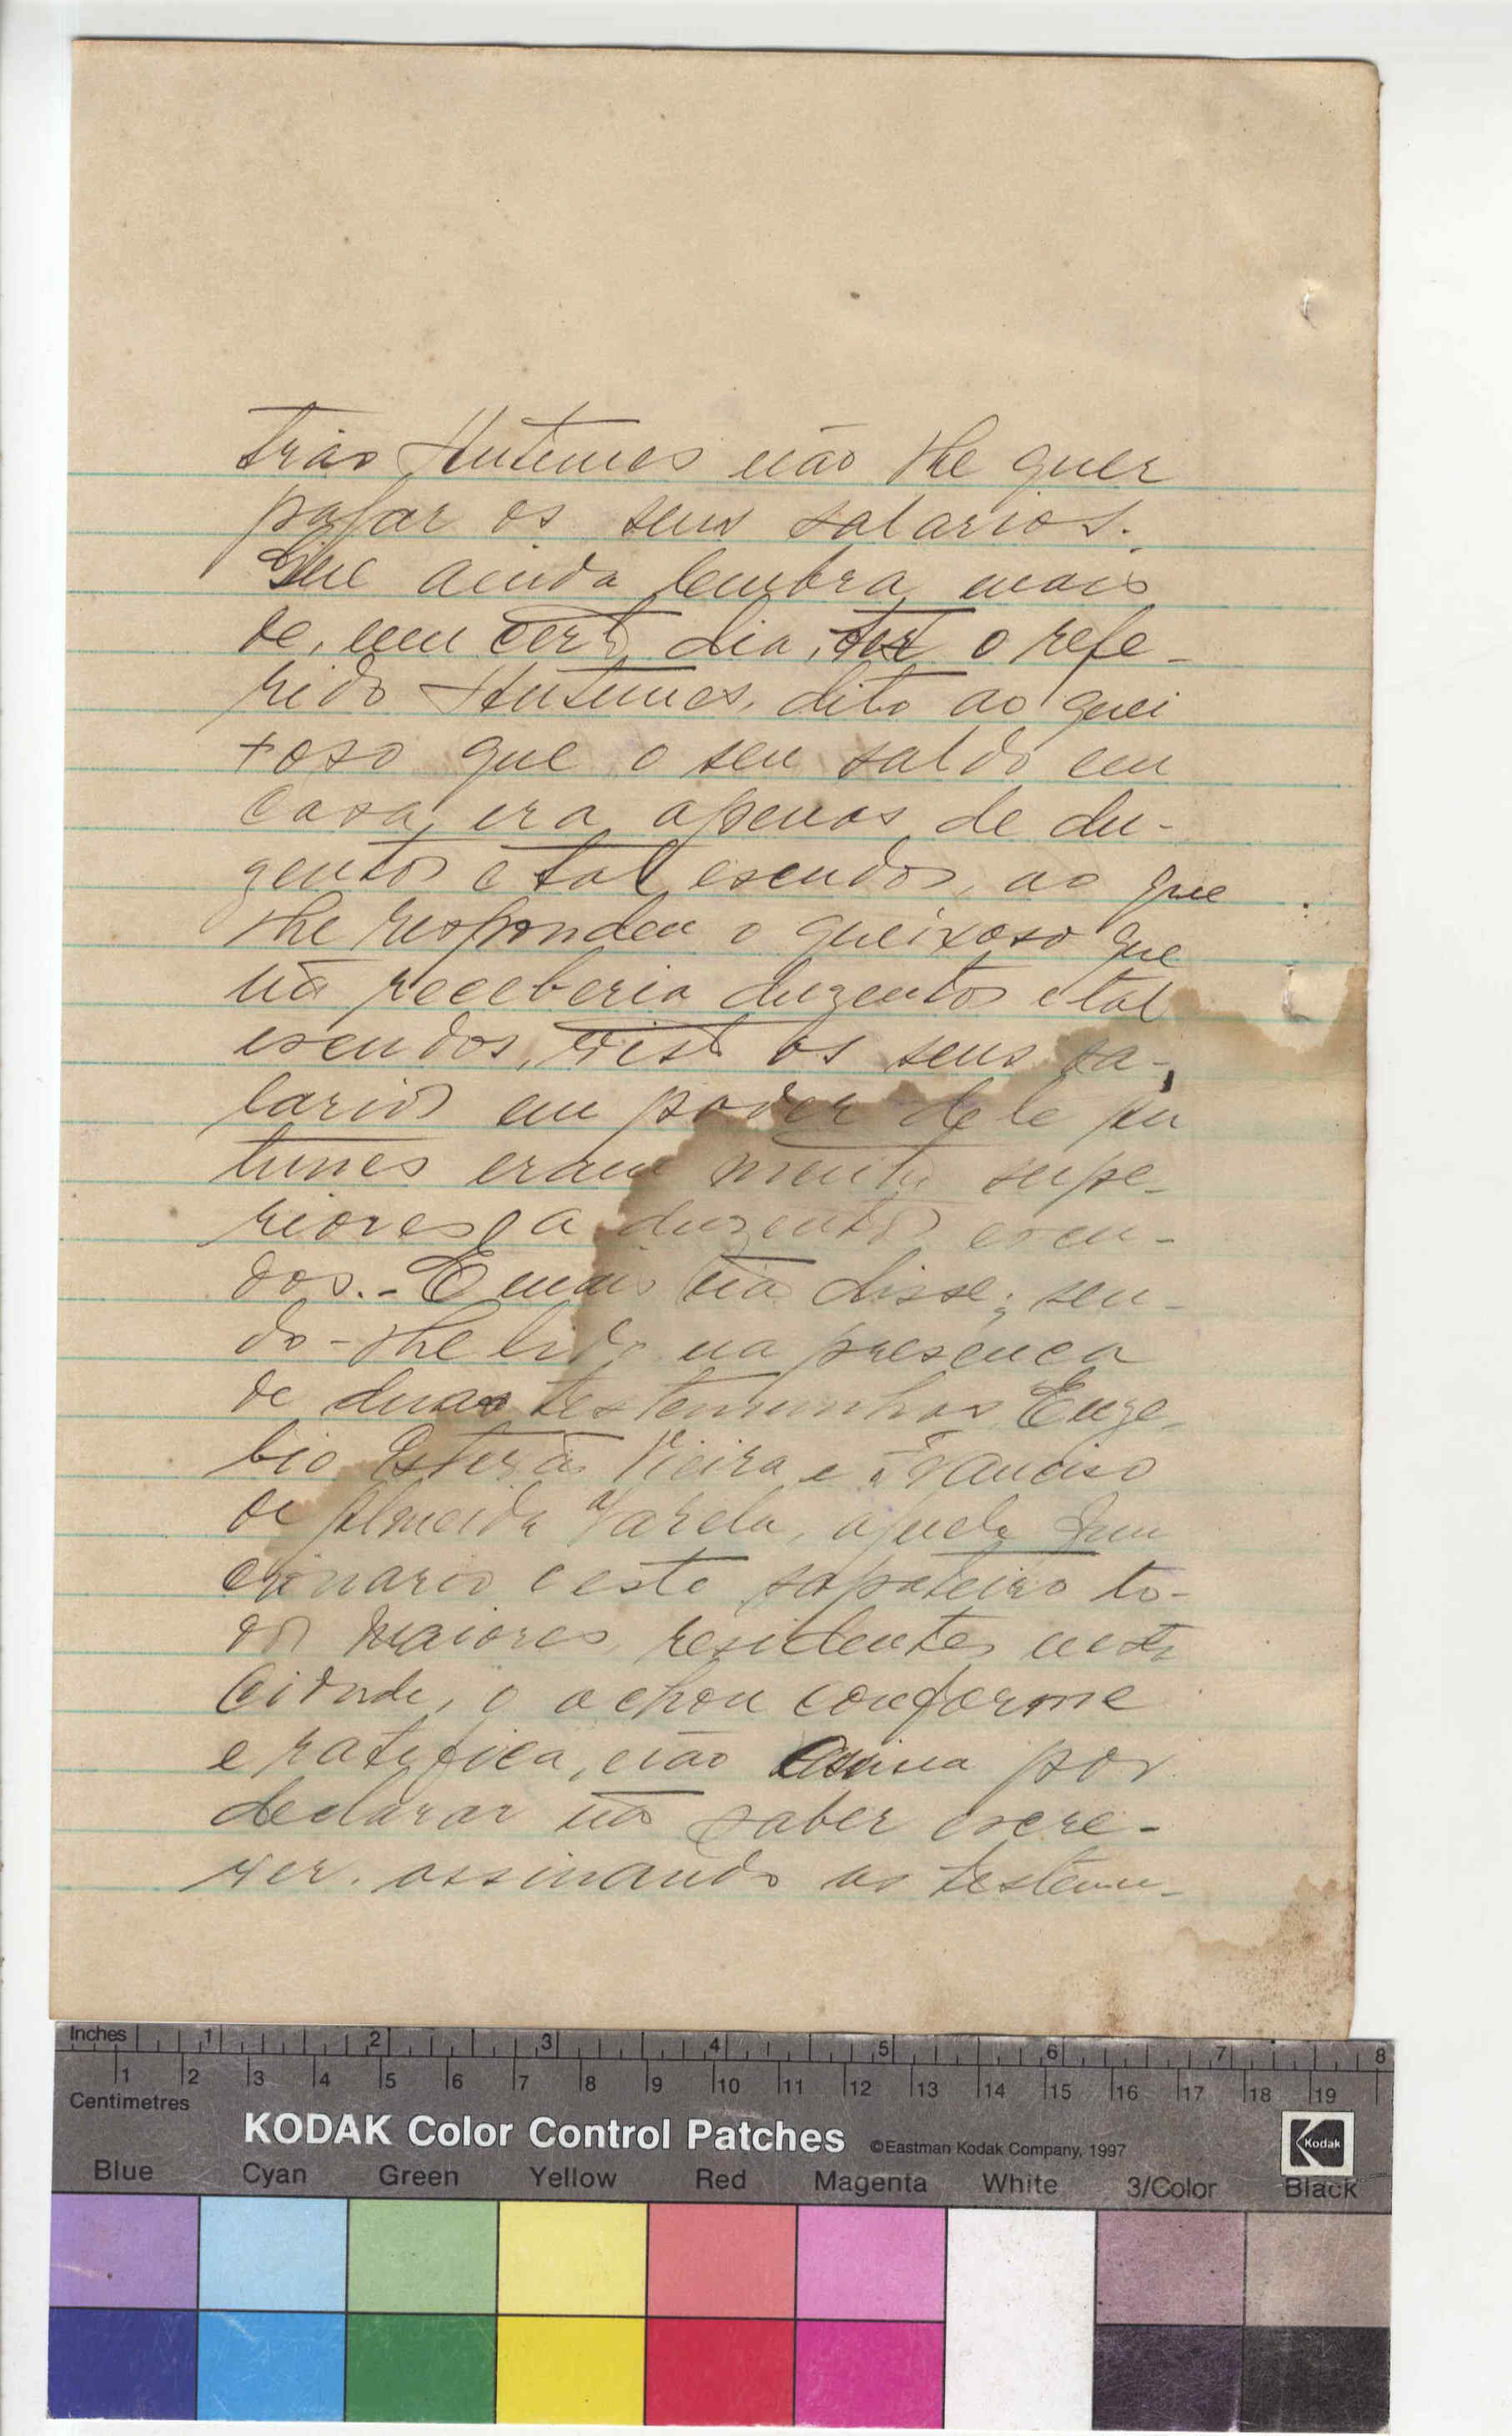 trão Antunes não lhe quer
pagar os seus salarios.
Que ainda lembra mais
de, um certo dia, ter o refe-
rido Antunes, dito ao quei
xoso que o seu saldo em
casa, era apenas de du-
zentos e tal escudos, ao que
lhe respondeu o queixoso que
não receberia duzentos e tal
escudos, visto os seus sa-
larios em poder dele An
tunes eram muito supe-
riores a duzentos escu-
dos.- E mais não disse; sen-
do-lhe lido na presença
de duas testemunhas Euge-
bio Estevão Vieira e Francisco
de Almeida Varela, aquele fun
cionario e este sapateiro to-
dos maiores, residentes nesta
Cidade, o achou conforme
e ratifica, não assina por
declarar não saber escre-
ver. assinando as testemu-
Inches 1 2 3 4 5 6 7 8
1 2 3 4 5 6 7 8 9 10 11 12 13 14 15 16 17 18 19
Centimetres
KODAK Color Control Patches ©Eastman Kodak Company, 1997 Kodak
Blue Cyan Green Yellow Red Magenta White 3/Color Black